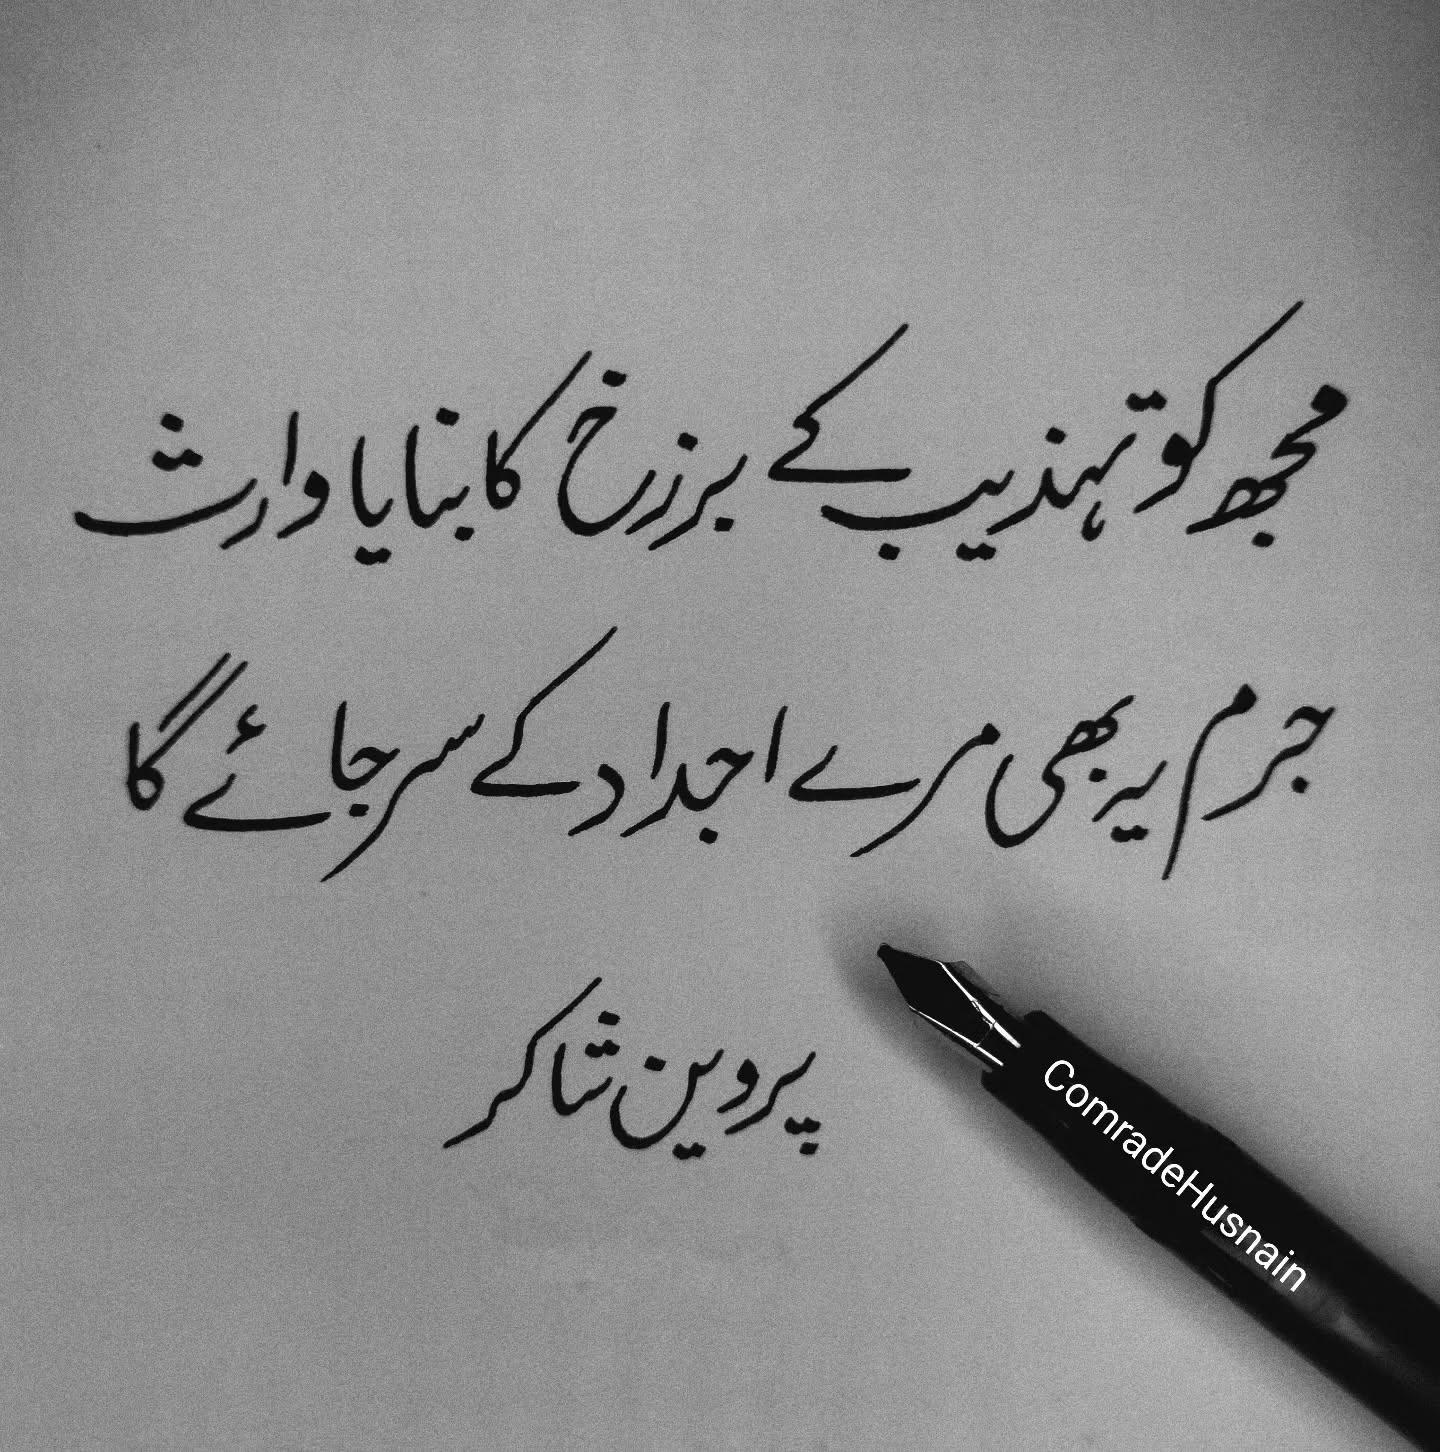 مجھ کو تہذیب کے برزخ کا بنایا وارث
جرم یہ بھی مرے اجداد کے سر جائے گا
پروین شاکر
ComradeHusnain